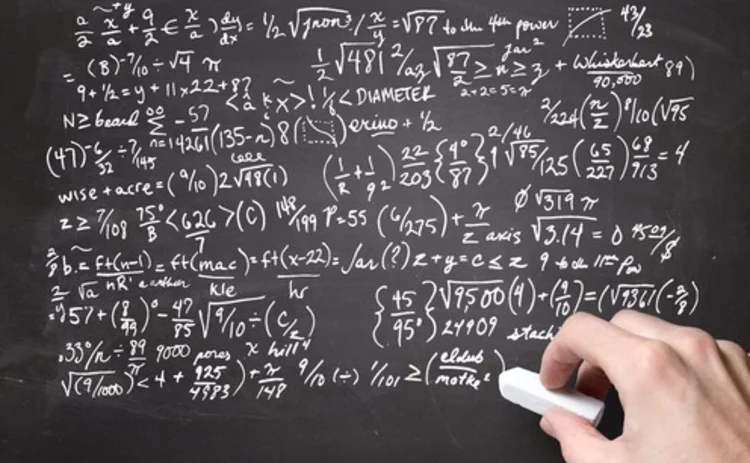 a/2 x/a + 9/2 € x/a ) dy/dx = 1/2 √jnon³ / x/y = √87 to the 4th power 43/23
= (8)^-7/10 ÷ √4 π 1/2 √481 2/az √87/2 ≥ n ≥ z + Whiskerhert/90,000 89)
9 + 1/2 = y + 11x22 + 8? <a k x>! 1/2 < DIAMETER 2+2=5=π
N ≥ beard ∞ Σ n=14261 -57 (135-n) 8 ( ) erino + 1/2 2/224 (n/z) 8/10 (√95
(47)^-6/32 ÷ 7/145 (1/R + 1/92) 22/203 {4°/87} 2/46 √85/125 (65/227) 68/913 = 4
wise + acre = (9/10) 2√98(1)
z ≥ 7/108 75°/B < 626/7 > (C) 148/199 P=55 (6/275) + π/z axis √3.14 = 0 Ø √319 π
b. = ft(n-1)/nR' = ft(mac)/kle = ft(x-22)/hr = Jar (?) z + y = c ≤ z 9 to the 11th Pow
2/√a a another
57 + (8/99)° - 47/85 √9/10 ÷ (C/z) {45/95°} √9,500 (4) + (9/10) = (√936) (-2/8)
24909 stack
.33%/n ÷ 89/π 9000 pores x hill 4
√(9/1000) < 4 + 925/4983 ) + π/148 9/10 (÷) 1/101 ≥ (eldub/motke²